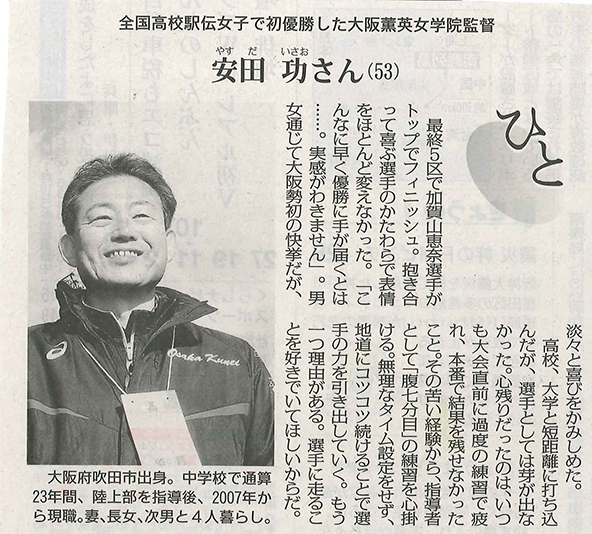 全国高校駅伝女子で初優勝した大阪薫英女学院監督
やすだ いさお
安田 功さん(53)
ひと
最終5区で加賀山恵奈選手が
トップでフィニッシュ。抱き合
って喜ぶ選手のかたわらで表情
をほとんど変えなかった。「こ
んなに早く優勝に手が届くとは
……。実感がわきません」。男
女通じて大阪勢初の快挙だが、
淡々と喜びをかみしめた。
高校、大学と短距離に打ち込
んだが、選手としては芽が出な
かった。心残りだったのは、いつ
も大会直前に過度の練習で疲
れ、本番で結果を残せなかった
こと。その苦い経験から、指導者
として「腹七分目」の練習を心掛
ける。無理なタイム設定をせず、
地道にコツコツ続けることで選
手の力を引き出していく。もう
一つ理由がある。選手に走るこ
とを好きでいてほしいからだ。
Osaka Kunei
大阪府吹田市出身。中学校で通算
23年間、陸上部を指導後、2007年か
ら現職。妻、長女、次男と4人暮らし。